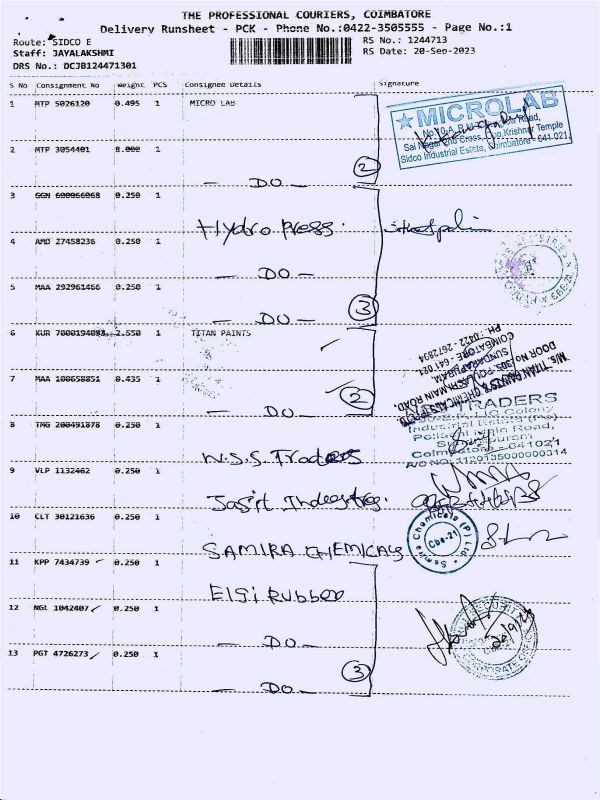 THE PROFESSIONAL COURIERS, COIMBATORE
Delivery Runsheet - PCK - Phone No.:0422-3505555 - Page No.:1
Route: SIDCO E
RS No.: 1244713
Staff: JAYALAKSHMI
RS Date: 20-Sep-2023
DRS No.: DCJB124471301
S No Consignment No Weight PCS Consignee Details Signature
1 MTP 5026120 0.495 1 MICRO LAB
★ MICROLAB
Sai Nagar 2nd Cross, Opp.Krishnar Temple
Sidco Industrial Estate, Coimbatore - 641 021.
2 MTP 3054401 8.000 1
- DO - 2
3 GGN 600066068 0.250 1
Hydro press.
4 AMD 27458236 0.250 1
- DO -
5 MAA 292961466 0.250 1
- DO - 3
6 KUR 7000194083 2.550 1 TITAN PAINTS
M/s. TITAN PAINTS & CHEMICALS
DOOR NO. 305, POLLACHI MAIN ROAD,
SUNDARAPURAM,
COIMBATORE - 641 021
PH.: 0422 - 2672894
7 MAA 100658851 0.435 1
- DO - 2
8 TNG 200491878 0.250 1
W.S.S. Traders
TRADERS
LIC Colony
Industrial Estate (Po)
Pollachi Main Road,
Coimbatore - 641021
9 VLP 1132462 0.250 1
Jasit Industries.
10 CLT 30121636 0.250 1
SAMIRA CHEMICALS
Samira Chemicals (P) Ltd.
Cbe-21
11 KPP 7434739 0.250 1
Elgi Rubber
12 NGL 1042407 0.250 1
- DO -
SECURITY
20/9/23
13 PGT 4726273 0.250 1
- DO - 3